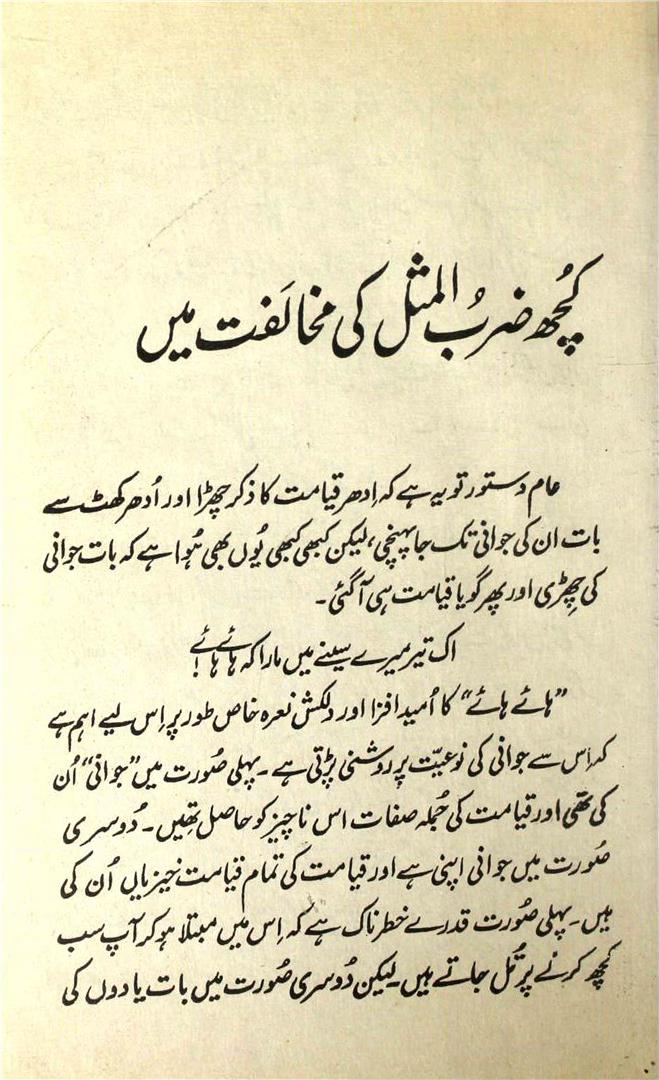 کُچھ ضربُ المثل کی مخالَفت میں
عام دستور تو یہ ہے کہ اِدھر قیامت کا ذکر چھڑا اور اُدھر کھٹ سے
بات ان کی جوانی تک جا پہنچی، لیکن کبھی کبھی یُوں بھی ہُوا ہے کہ بات جوانی
کی چِھڑی اور پھر گویا قیامت ہی آ گئی۔
اک تیر میرے سینے میں مارا کہ ہائے ہائے!
”ہائے ہائے“ کا اُمید افزا اور دلکش نعرہ خاص طور پر اِس لیے اہم ہے
کہ اِس سے جوانی کی نوعیّت پر روشنی پڑتی ہے۔ پہلی صُورت میں ”جوانی“ اُن
کی تھی اور قیامت کی جُملہ صفات اس ناچیز کو حاصل تھیں۔ دُوسری
صُورت میں جوانی اپنی ہے اور قیامت کی تمام قیامت خیزیاں اُن کی
ہیں۔ پہلی صُورت قدرے خطرناک ہے کہ اِس میں مبتلا ہو کر آپ سب
کچھ کرنے پر تُل جاتے ہیں۔ لیکن دُوسری صُورت میں بات یادوں کی